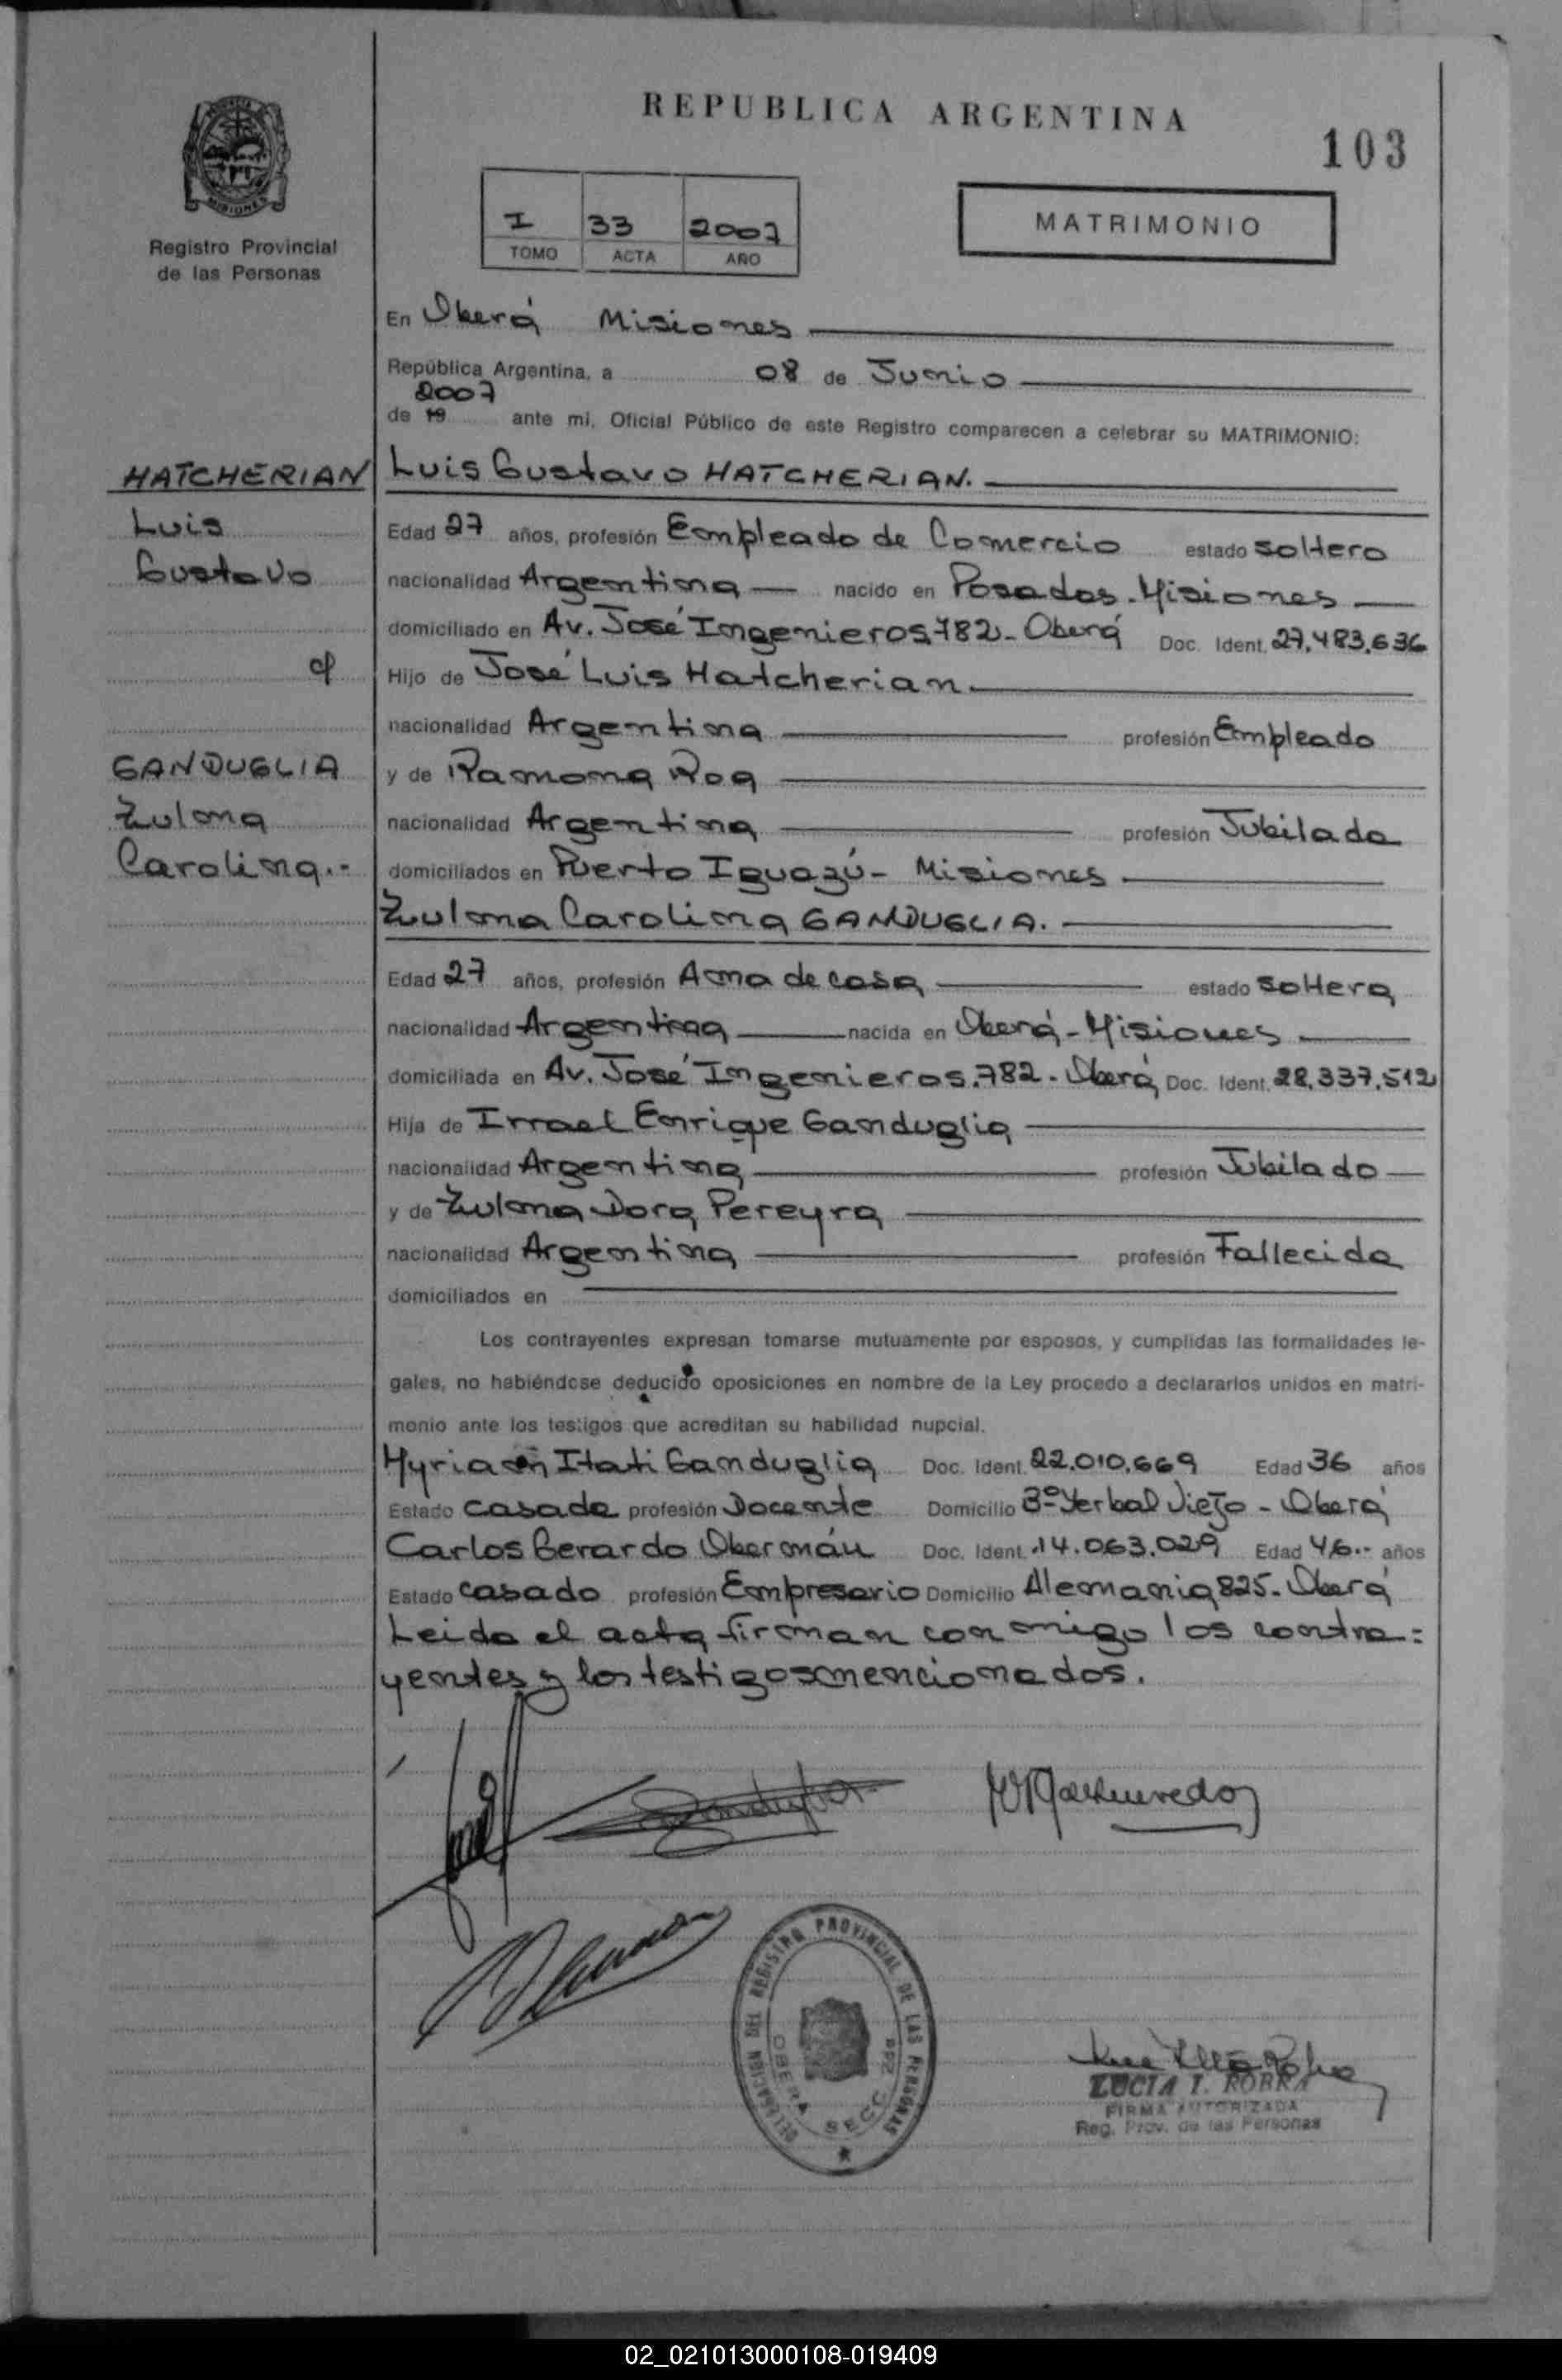 REPUBLICA ARGENTINA
103
MISIONES
Registro Provincial
de las Personas
I 33 2007
TOMO ACTA AÑO
MATRIMONIO
En Oberá Misiones
República Argentina, a 08 de Junio
2007
de 19 ante mi, Oficial Público de este Registro comparecen a celebrar su MATRIMONIO:
HATCHERIAN
Luis
Gustavo
c/
GANDUGLIA
Zulma
Carolina.-
Luis Gustavo HATCHERIAN.
Edad 27 años, profesión Empleado de Comercio estado soltero
nacionalidad Argentina nacido en Posadas - Misiones
domiciliado en Av. José Ingenieros 782 - Oberá Doc. Ident. 27.483.636
Hijo de José Luis Hatcherian.
nacionalidad Argentina profesión Empleado
y de Ramona Roa
nacionalidad Argentina profesión Jubilada
domiciliados en Puerto Iguazú - Misiones
Zulma Carolina GANDUGLIA.
Edad 27 años, profesión Ama de casa estado soltera
nacionalidad Argentina nacida en Oberá - Misiones
domiciliada en Av. José Ingenieros.782 - Oberá Doc. Ident. 28.337.512
Hija de Irrael Enrique Ganduglia
nacionalidad Argentina profesión Jubilado
y de Zulma Dora Pereyra
nacionalidad Argentina profesión Fallecida
domiciliados en
Los contrayentes expresan tomarse mutuamente por esposos, y cumplidas las formalidades le-
gales, no habiéndose deducido oposiciones en nombre de la Ley procedo a declararlos unidos en matri-
monio ante los testigos que acreditan su habilidad nupcial.
Myriam Itati Ganduglia Doc. Ident. 22.010.669 Edad 36 años
Estado casada profesión Docente Domicilio 3º Yerbal Viejo - Oberá
Carlos Gerardo Obermán Doc. Ident. 14.063.029 Edad 46.- años
Estado casado profesión Empresario Domicilio Alemania 825 - Oberá
Leida el acta firman conmigo los contra=
yentes y los testigos mencionados.
DELEGACION DEL REGISTRO PROVINCIAL DE LAS PERSONAS
OBERA SECC
LUCIA I. RORRA
FIRMA AUTORIZADA
Reg. Prov. de las Personas
02_021013000108-019409